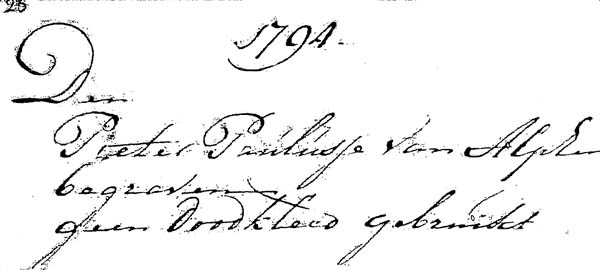 1794
Den
Pieter Paulusse van Alphen
begraven
geen doodkleed gebruikt